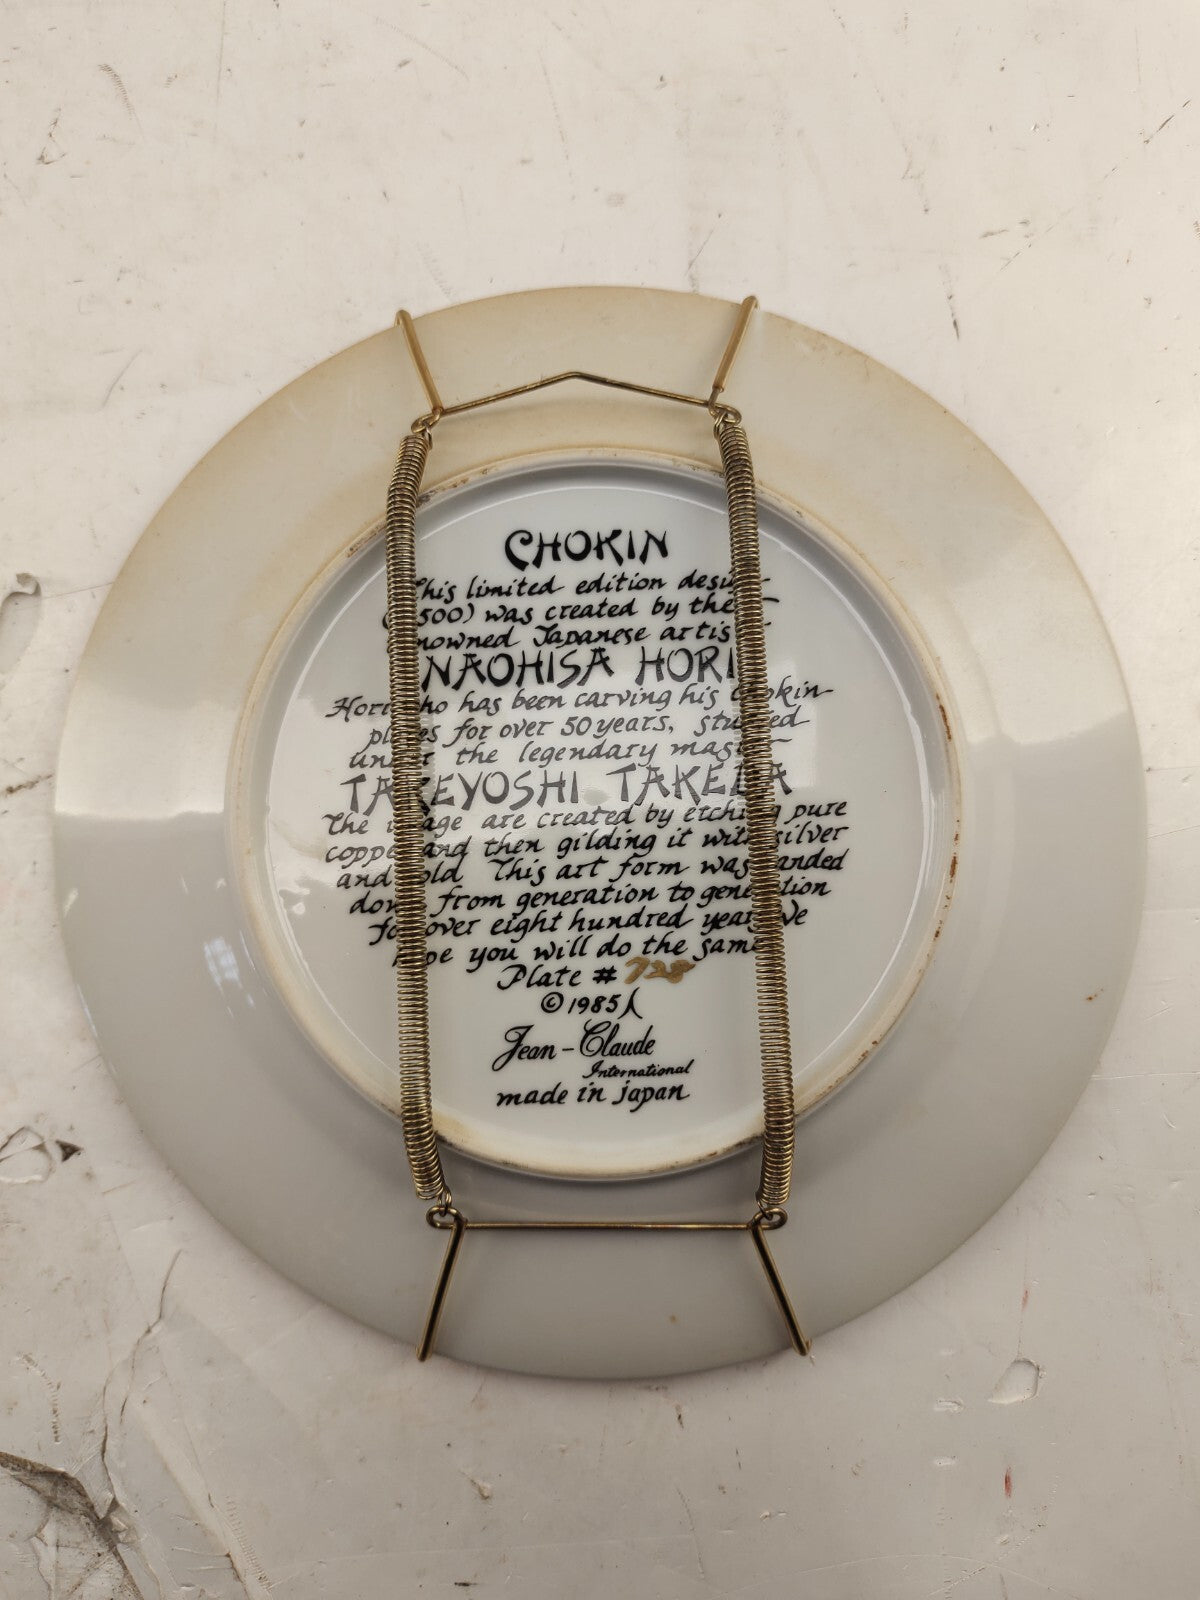 CHOKIN
This limited edition
500) was created by the
Japanese
NAOHISA HORI
has been carving his Chokin
for over 50 years,
under the legendary
TAKEYOSHI TAKEDA
The image are created by etching pure
copper and then gilding it with silver
and gold This art form was handed
down from generation to generation
for over eight hundred years
hope you will do the same
Plate # 728
© 1985
Jean-Claude
International
made in japan